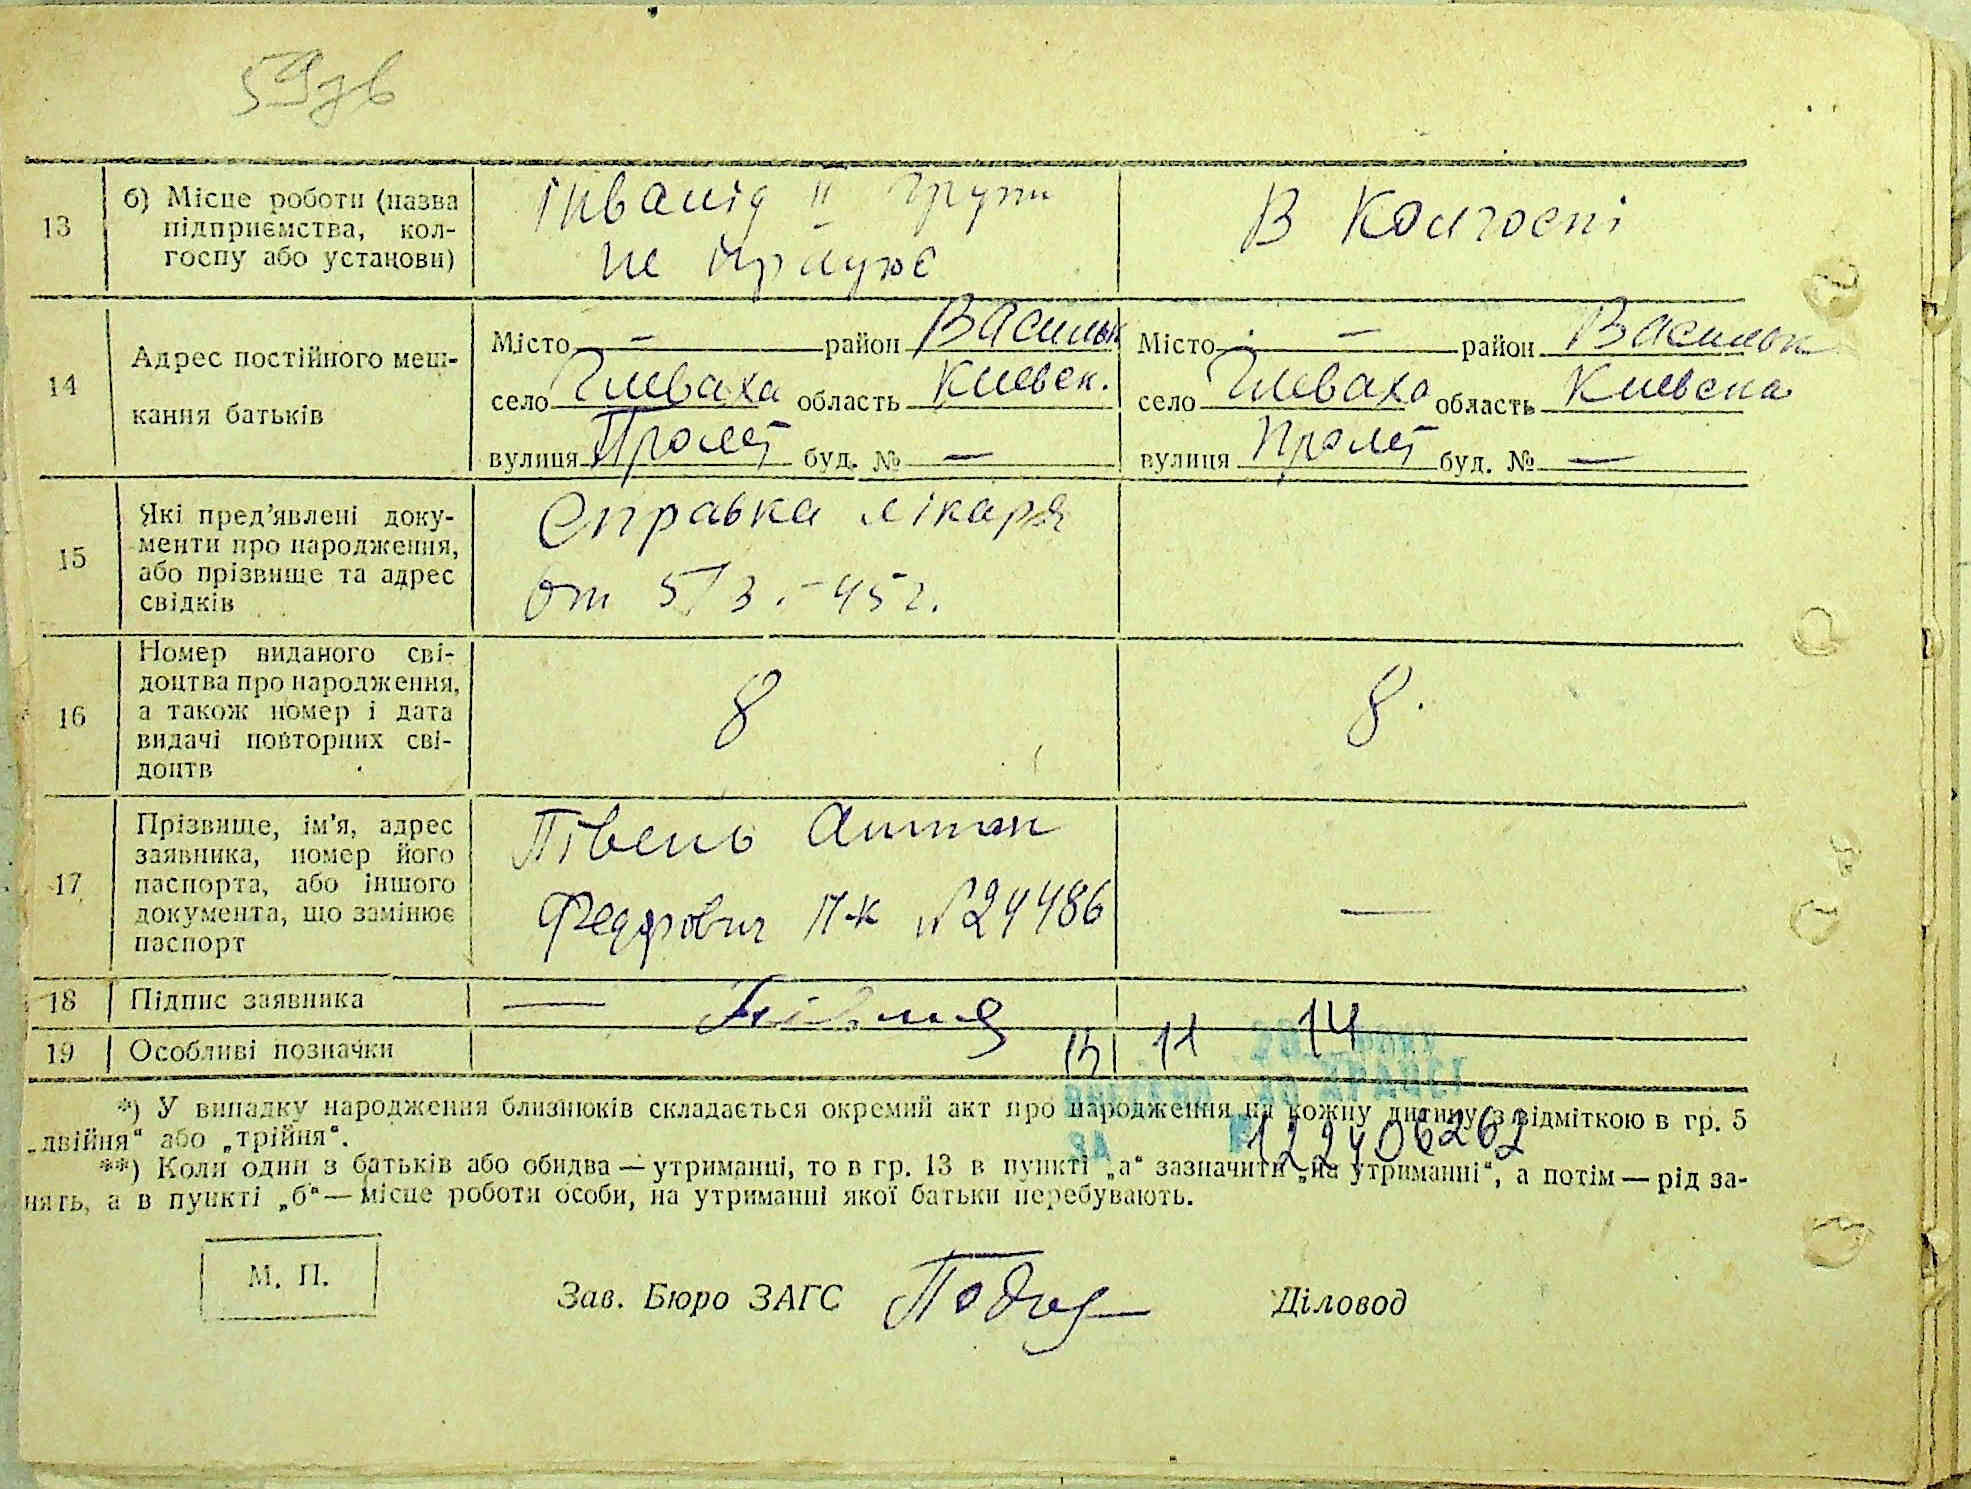 59зв
13
б) Місце роботи (назва
підприємства, кол-
госпу або установи)
інвалід II групи
не працює
В колгоспі
14
Адрес постійного меш-
кання батьків
Місто — район Васильк
село Глеваха область Киевск.
вулиця Пролет буд. № —
Місто — район Васильк
село Глеваха область Киевска
вулиця Пролет буд. № —
15
Які пред’явлені доку-
менти про народження,
або прізвище та адрес
свідків
Справка лікаря
от 5/3.-45 г.
16
Номер виданого сві-
доцтва про народження,
а також номер і дата
видачі повторних сві-
доцтв
8
8.
17
Прізвище, ім’я, адрес
заявника, номер його
паспорта, або іншого
документа, що замінює
паспорт
Півень Антон
Федорович П-к №24486
—
18
Підпис заявника
—
19
Особливі позначки
11 14
*) У випадку народження близнюків складається окремий акт про народження на кожну дитину з відміткою в гр. 5
„двійня“ або „трійня“.
122406262
**) Коли один з батьків або обидва — утриманці, то в гр. 13 в пункті „а“ зазначити „на утриманні“, а потім — рід за-
нять, а в пункті „б“ — місце роботи особи, на утриманні якої батьки перебувають.
М. П.
Зав. Бюро ЗАГС
Діловод